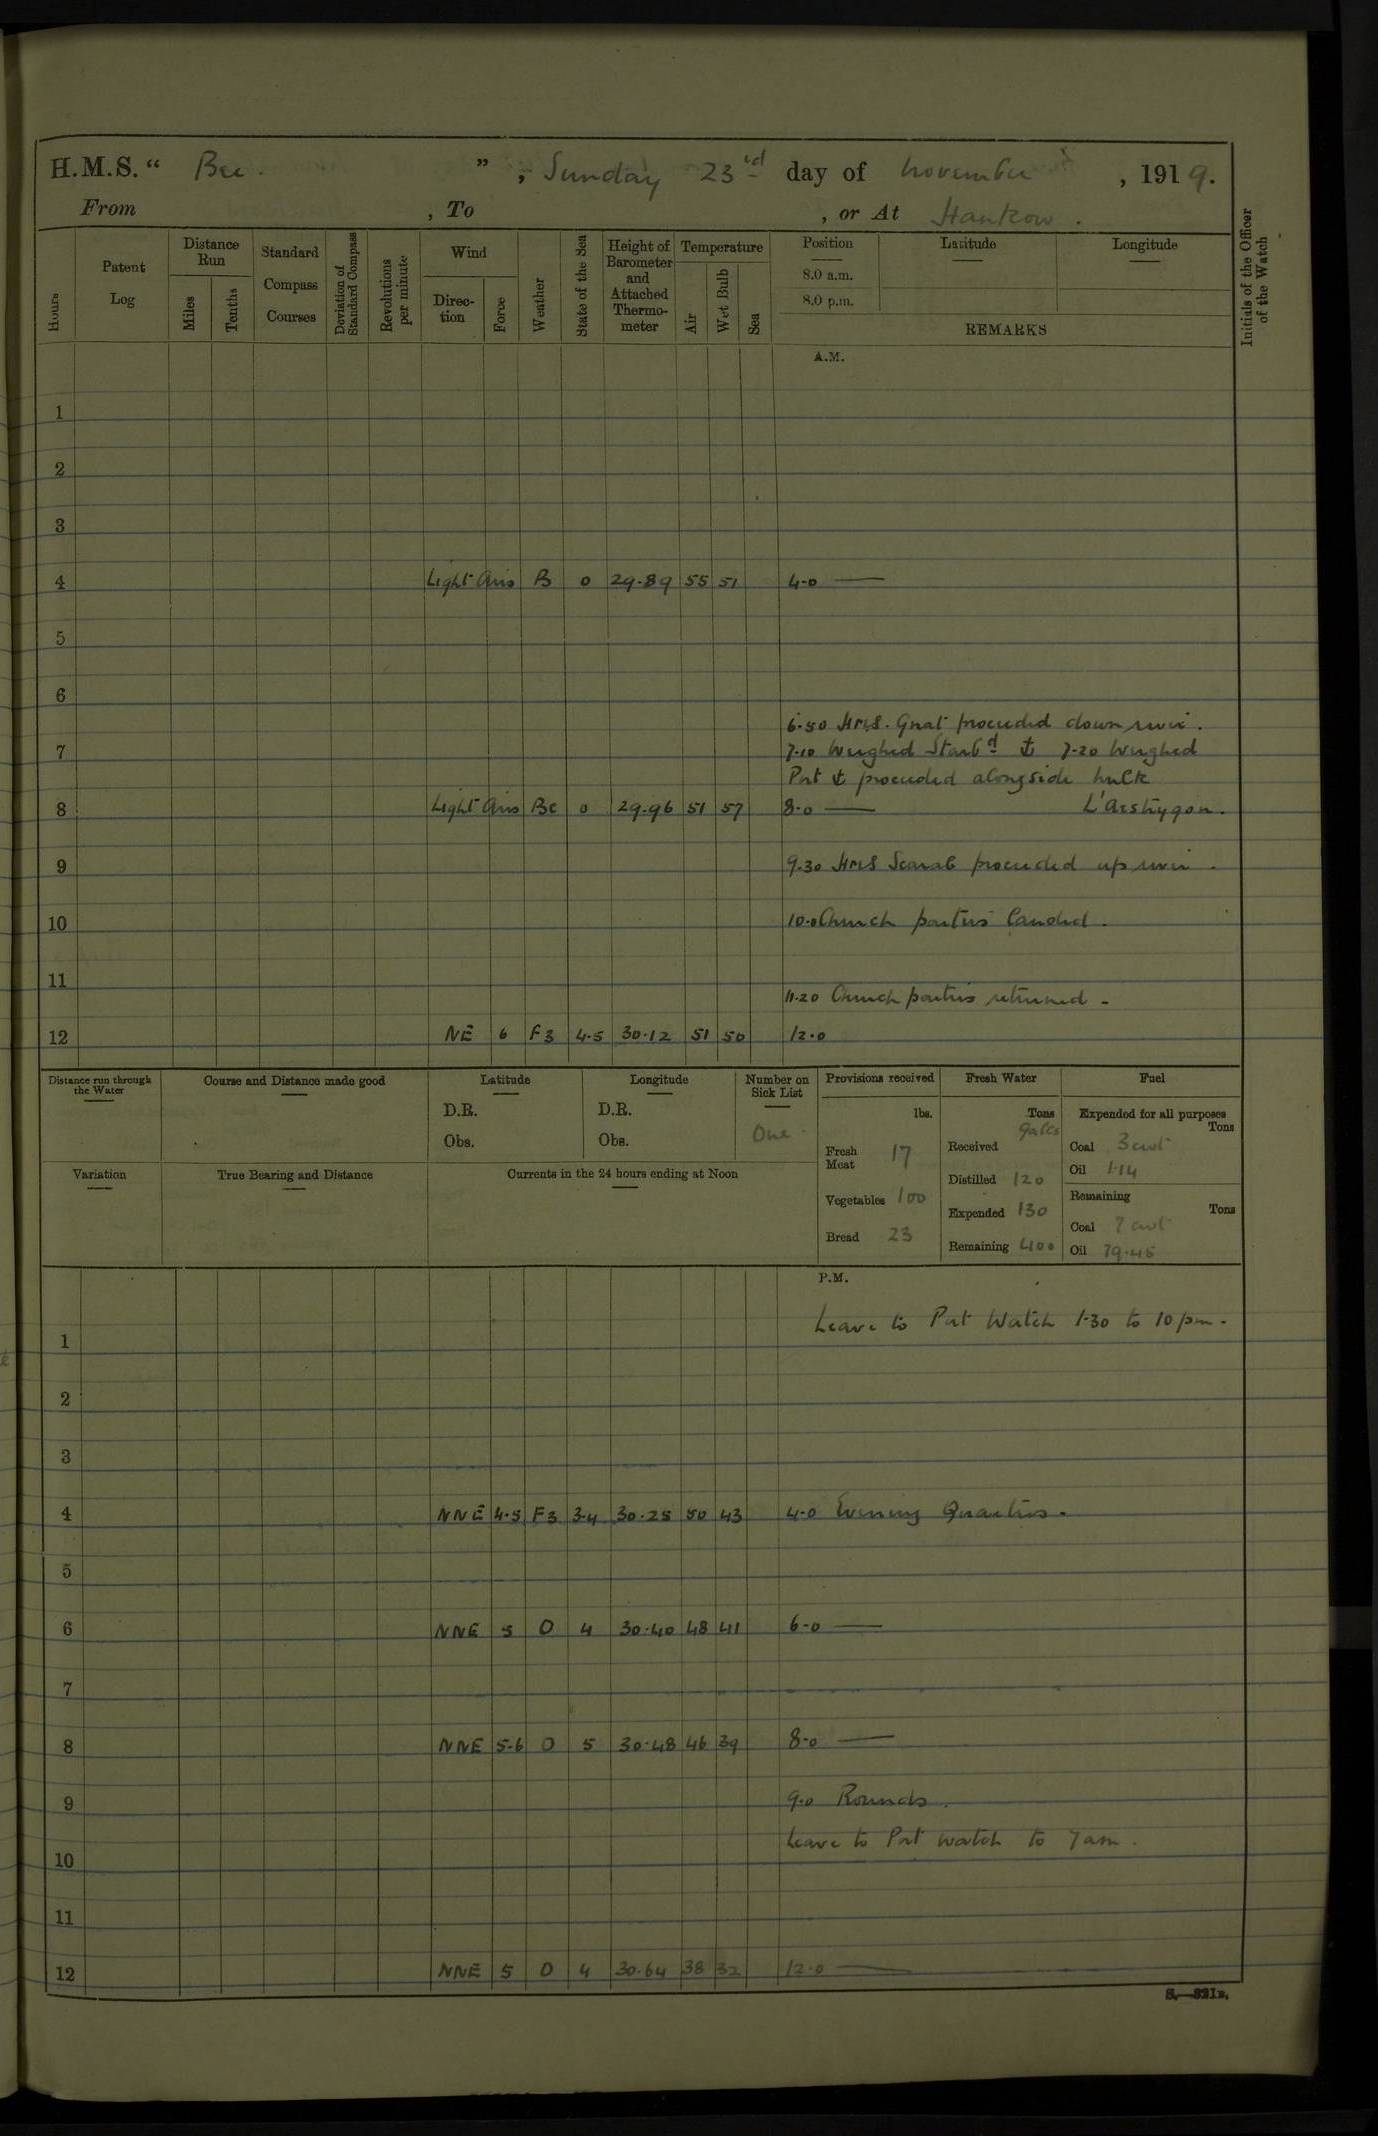 H.M.S. " Bee. ", Sunday 23rd day of November, 1919.
From , To , or At Hankow.
Hours
Patent Log
Distance Run
Miles
Tenths
Standard Compass Courses
Deviation of Standard Compass
Revolutions per minute
Wind
Direction
Force
Weather
State of the Sea
Height of Barometer and Attached Thermometer
Temperature
Air
Wet Bulb
Sea
Position
8.0 a.m.
8.0 p.m.
Latitude
Longitude
REMARKS
Initials of the Officer of the Watch
A.M.
1
2
3
4 Light Airs B 0 29.89 55 51 4.0 —
5
6
6.50 HMS. Gnat proceeded down river.
7 7.10 Weighed Starbd ⚓ 7.20 Weighed
Port ⚓ proceeded alongside hulk
8 Light Airs Bc 0 29.96 51 57 8.0 — L'aestrygon.
9 9.30 HMS Scarab proceeded up river.
10 10.0 Church parties landed.
11
11.20 Church parties returned.
12 NE 6 F3 4.5 30.12 51 50 12.0
Distance run through the Water
Course and Distance made good
Latitude
D.R.
Obs.
Longitude
D.R.
Obs.
Number on Sick List
One.
Provisions received
lbs.
Fresh Meat 17
Vegetables 100
Bread 23
Fresh Water
Tons
Galls
Received
Distilled 120
Expended 130
Remaining 400
Fuel
Expended for all purposes
Tons
Coal 3 cwt
Oil 1.14
Remaining
Tons
Coal 7 cwt
Oil 79.45
Variation
True Bearing and Distance
Currents in the 24 hours ending at Noon
P.M.
Leave to Port Watch 1.30 to 10 pm.
1
2
3
4 NNE 4.5 F3 3.4 30.25 50 43 4.0 Evening Quarters.
5
6 NNE 5 O 4 30.40 48 41 6.0 —
7
8 NNE 5.6 O 5 30.48 46 39 8.0 —
9 9.0 Rounds.
Leave to Port watch to 7 am.
10
11
12 NNE 5 O 4 30.64 38 32 12.0 —
S.—321B.